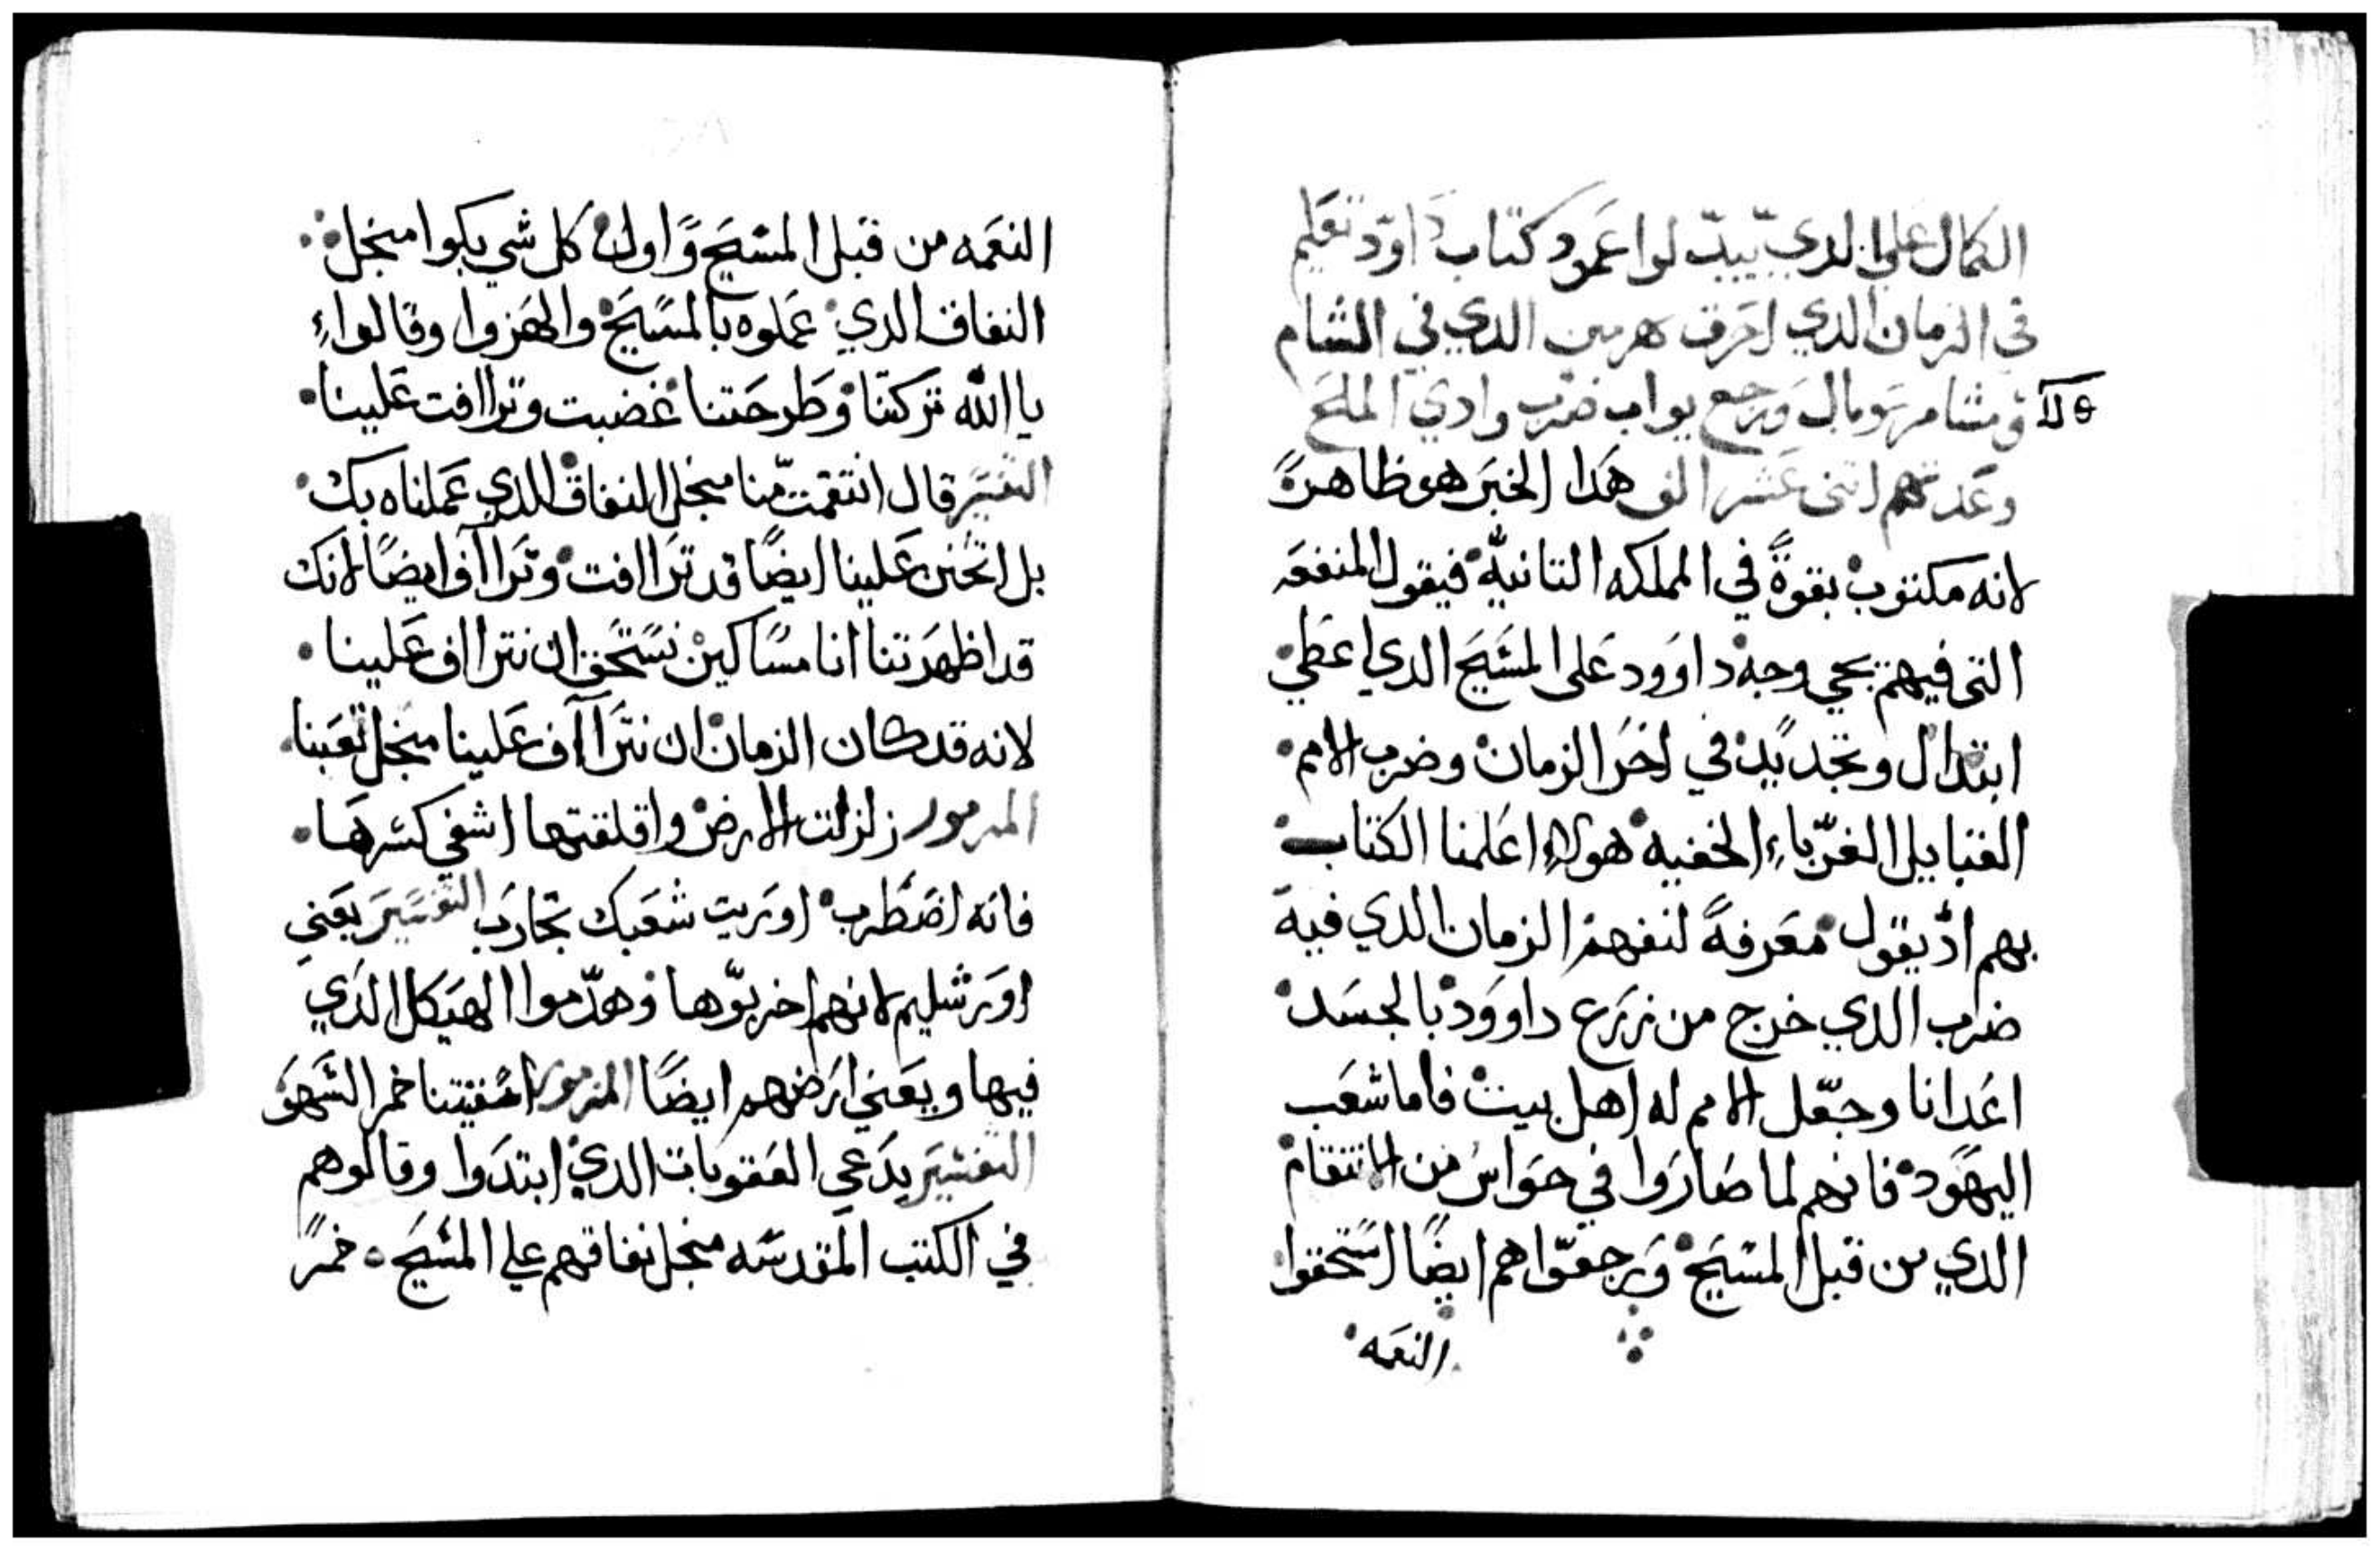 الكمال على الدي يبدلوا عمود كتاب داوود تعليم
في الزمان الدي احرق هرمين الدي في الشام
ومشامر سوبال ورجع يواب ضرب وادي الملح
وعدتهم اتنى عشر الف هدا الخبر هو ظاهرة
لانه مكتوب بقوة في المملكه التانية فيقول المنفعه
التي فيهم يجي وجه داوود على المسيح الدي اعطي
ابتدال وتجديد في اخر الزمان وضرب الامم
القبايل الغرباء الخفيه هولاء اعلمنا الكتاب
بهم اد يقول معرفة لنفهم الزمان الدي فيه
ضرب الدي خرج من زرع داوود بالجسد
اعدانا وجعل الامم له اهل بيت فاما شعب
اليهود فانهم لما صاروا في حواس من الانتقام
الدي من قبل المسيح ورجعوا هم ايضا استحقوا
النعمه
النعمه من قبل المسيح واول كل شي يبكوا منجل
النفاق الدي عملوه بالمسيح والهزوا وقالوا
يا الله تركتنا وطرحتنا غضبت وتراافت علينا
التفسير قال انتقمت منا منجل النفاق الدي عملناه بك
بل اتحنن علينا ايضا قد تراافت وتراآف ايضا لانك
قد اظهرتنا انا مساكين نستحق ان نتراأف علينا
لانه قد كان الزمان ان نتراآف علينا منجل تعبنا
المزمور زلزلت الارض واقلقتها اشفي كسرها
فانه اضطرب اوريت شعبك تجارب التفسير يعني
اورشليم لانهم اخربوها وهدموا الهيكل الدي
فيها ويعني ارضهم ايضا المزمور اسقيتنا خمر السهو
التفسير يدعي العقوبات الدي ابتدوا وقالوهم
في الكتب المقدسه منجل نفاقهم علي المسيح خمر